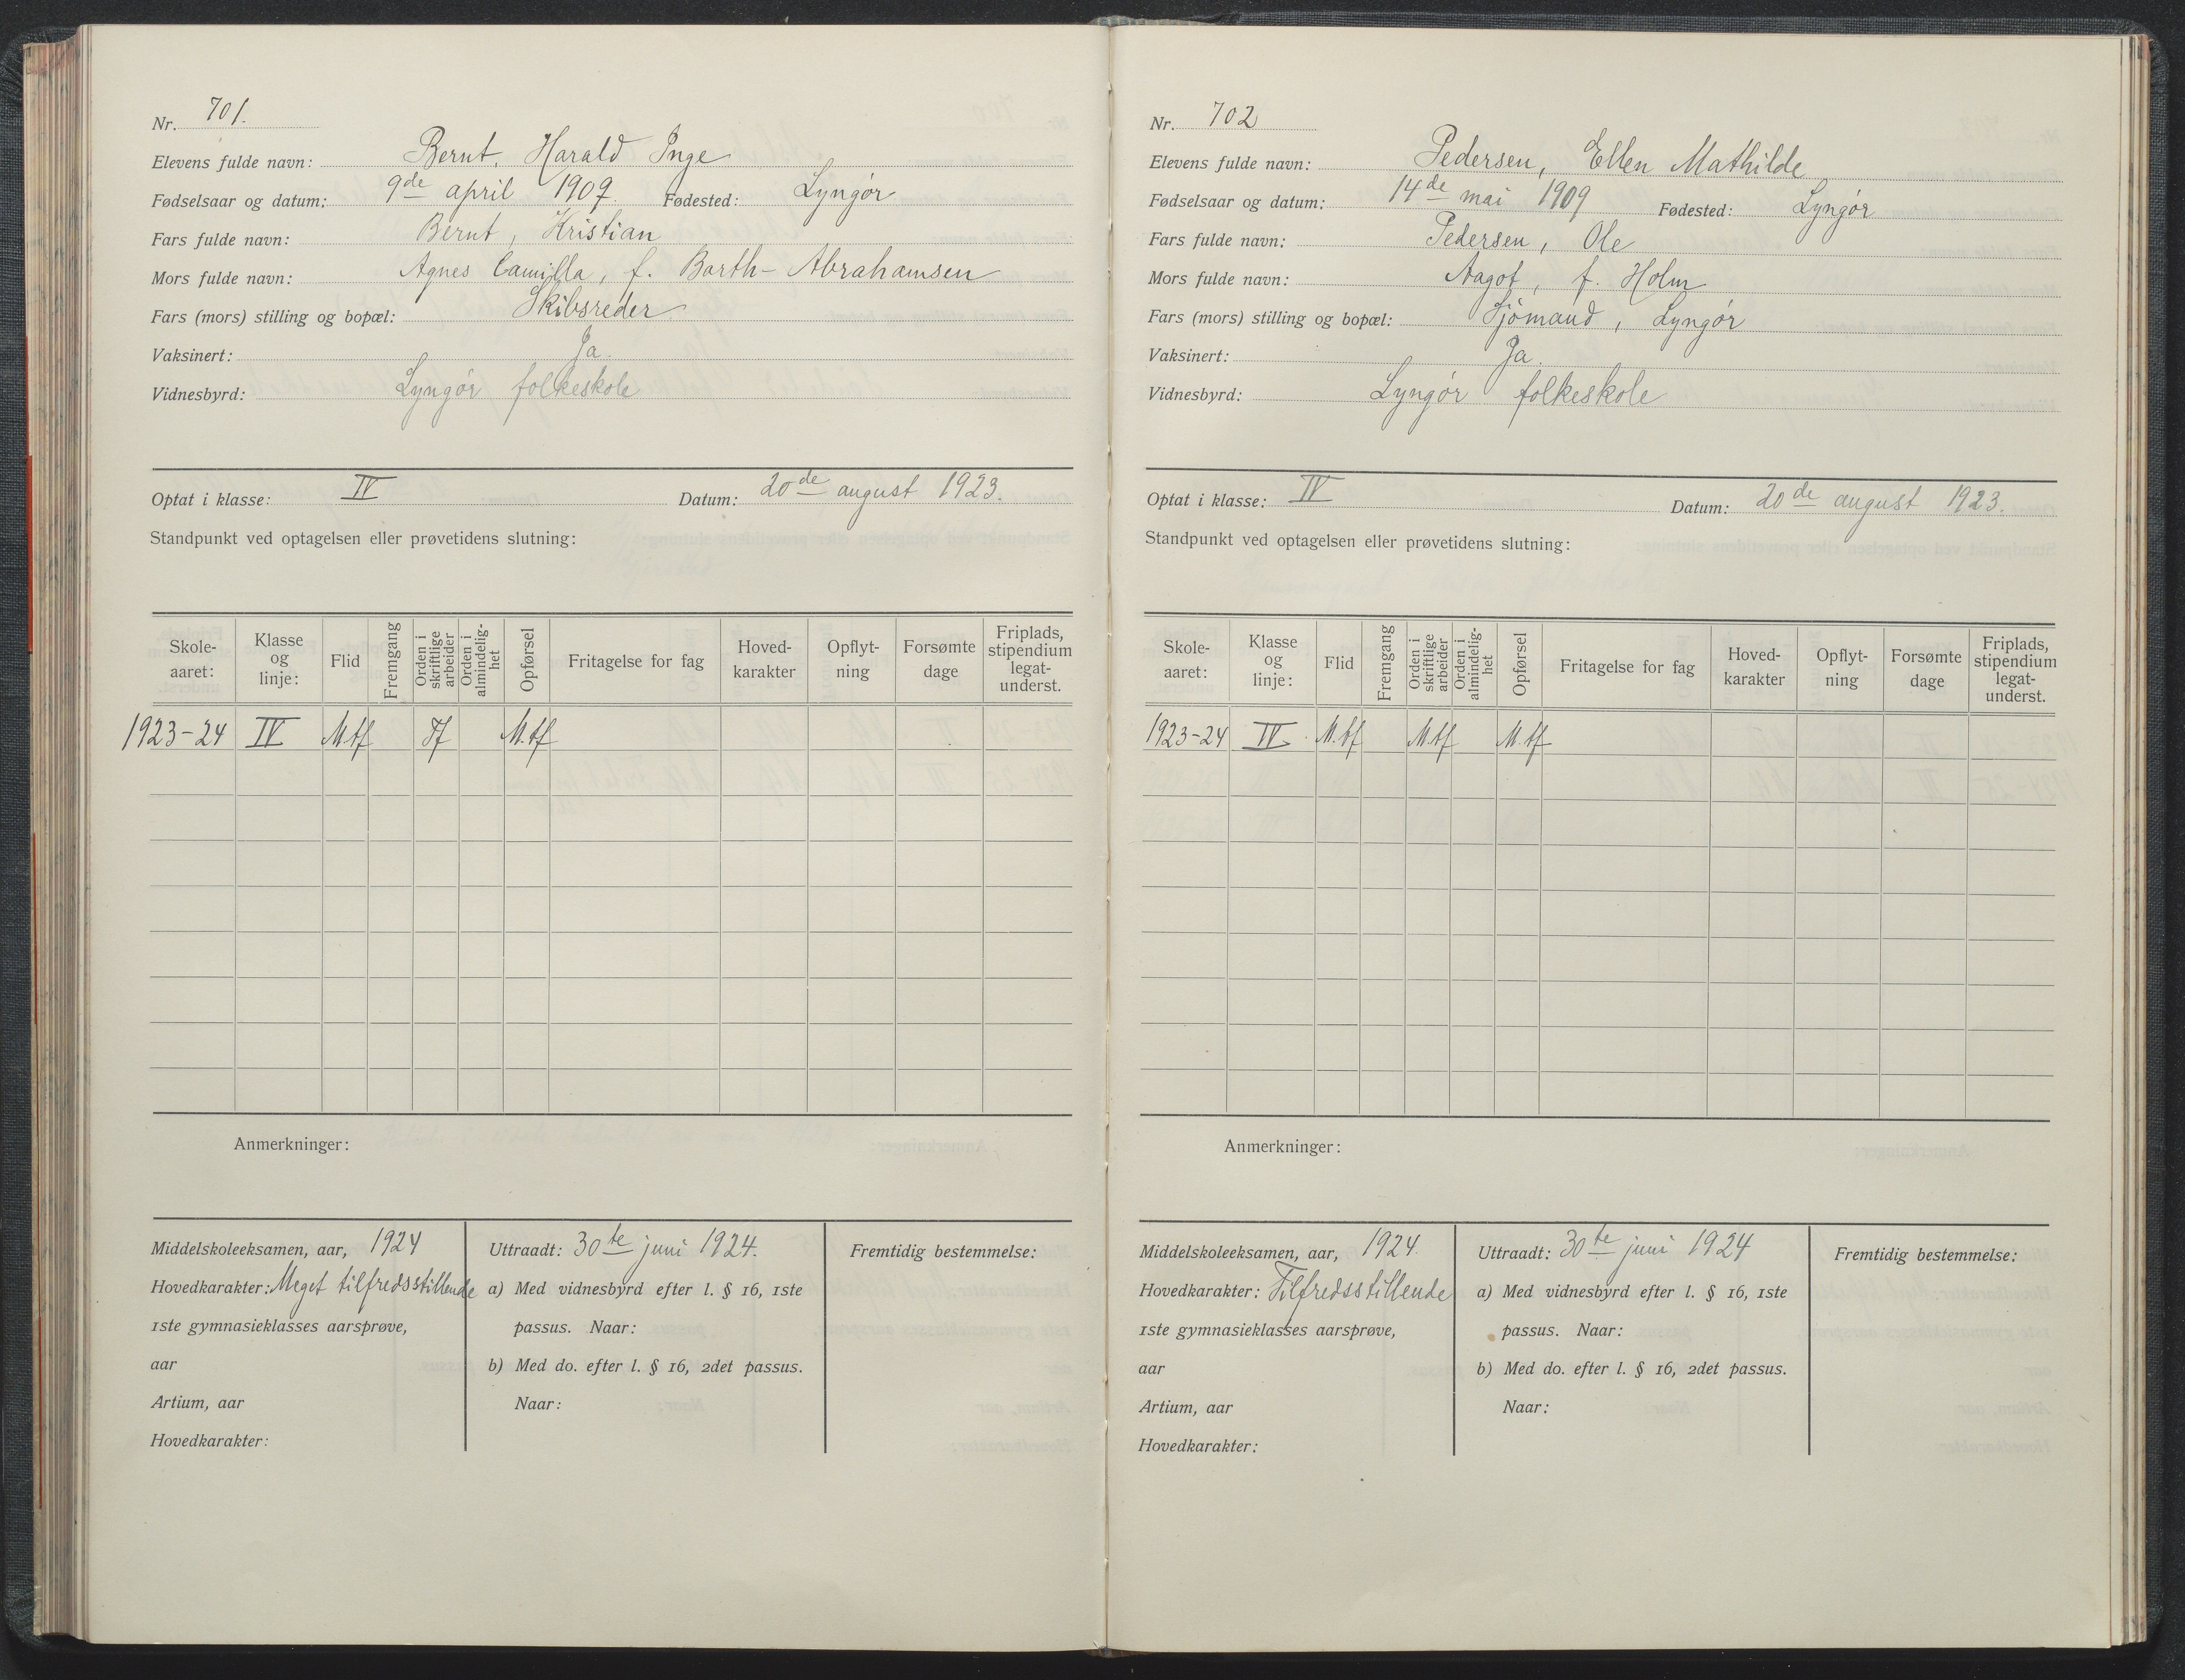 Nr. 701.
Elevens fulde navn: Bernt, Harald Inge
Fødselsaar og datum: 9de april 1909 Fødested: Lyngør
Fars fulde navn: Bernt, Kristian
Mors fulde navn: Agnes Camilla, f. Barth-Abrahamsen
Fars (mors) stilling og bopæl: Skibsreder
Vaksinert: Ja.
Vidnesbyrd: Lyngør folkeskole
Optat i klasse: IV Datum: 20de august 1923.
Standpunkt ved optagelsen eller prøvetidens slutning:
Skole-aaret: Klasse og linje: Flid Fremgang Orden i skriftlige arbeider Orden i almindelig-het Opførsel Fritagelse for fag Hoved-karakter Opflyt-ning Forsømte dage Friplads, stipendium legat-underst.
1923-24 IV M.tf Tf M.tf
Anmerkninger:
Middelskoleeksamen, aar, 1924
Hovedkarakter: Meget tilfredsstillende
1ste gymnasieklasses aarsprøve,
aar
Artium, aar
Hovedkarakter:
Uttraadt: 30te juni 1924.
a) Med vidnesbyrd efter l. § 16, 1ste
passus. Naar:
b) Med do. efter l. § 16, 2det passus.
Naar:
Fremtidig bestemmelse:
Nr. 702
Elevens fulde navn: Pedersen, Ellen Mathilde
Fødselsaar og datum: 14de mai 1909 Fødested: Lyngør
Fars fulde navn: Pedersen, Ole
Mors fulde navn: Aagot, f. Holm
Fars (mors) stilling og bopæl: Sjømand, Lyngør
Vaksinert: Ja.
Vidnesbyrd: Lyngør folkeskole
Optat i klasse: IV Datum: 20de august 1923.
Standpunkt ved optagelsen eller prøvetidens slutning:
Skole-aaret: Klasse og linje: Flid Fremgang Orden i skriftlige arbeider Orden i almindelig-het Opførsel Fritagelse for fag Hoved-karakter Opflyt-ning Forsømte dage Friplads, stipendium legat-underst.
1923-24 IV M.tf M.tf M.tf
Anmerkninger:
Middelskoleeksamen, aar, 1924.
Hovedkarakter: Tilfredsstillende
1ste gymnasieklasses aarsprøve,
aar
Artium, aar
Hovedkarakter:
Uttraadt: 30te juni 1924
a) Med vidnesbyrd efter l. § 16, 1ste
passus. Naar:
b) Med do. efter l. § 16, 2det passus.
Naar:
Fremtidig bestemmelse: